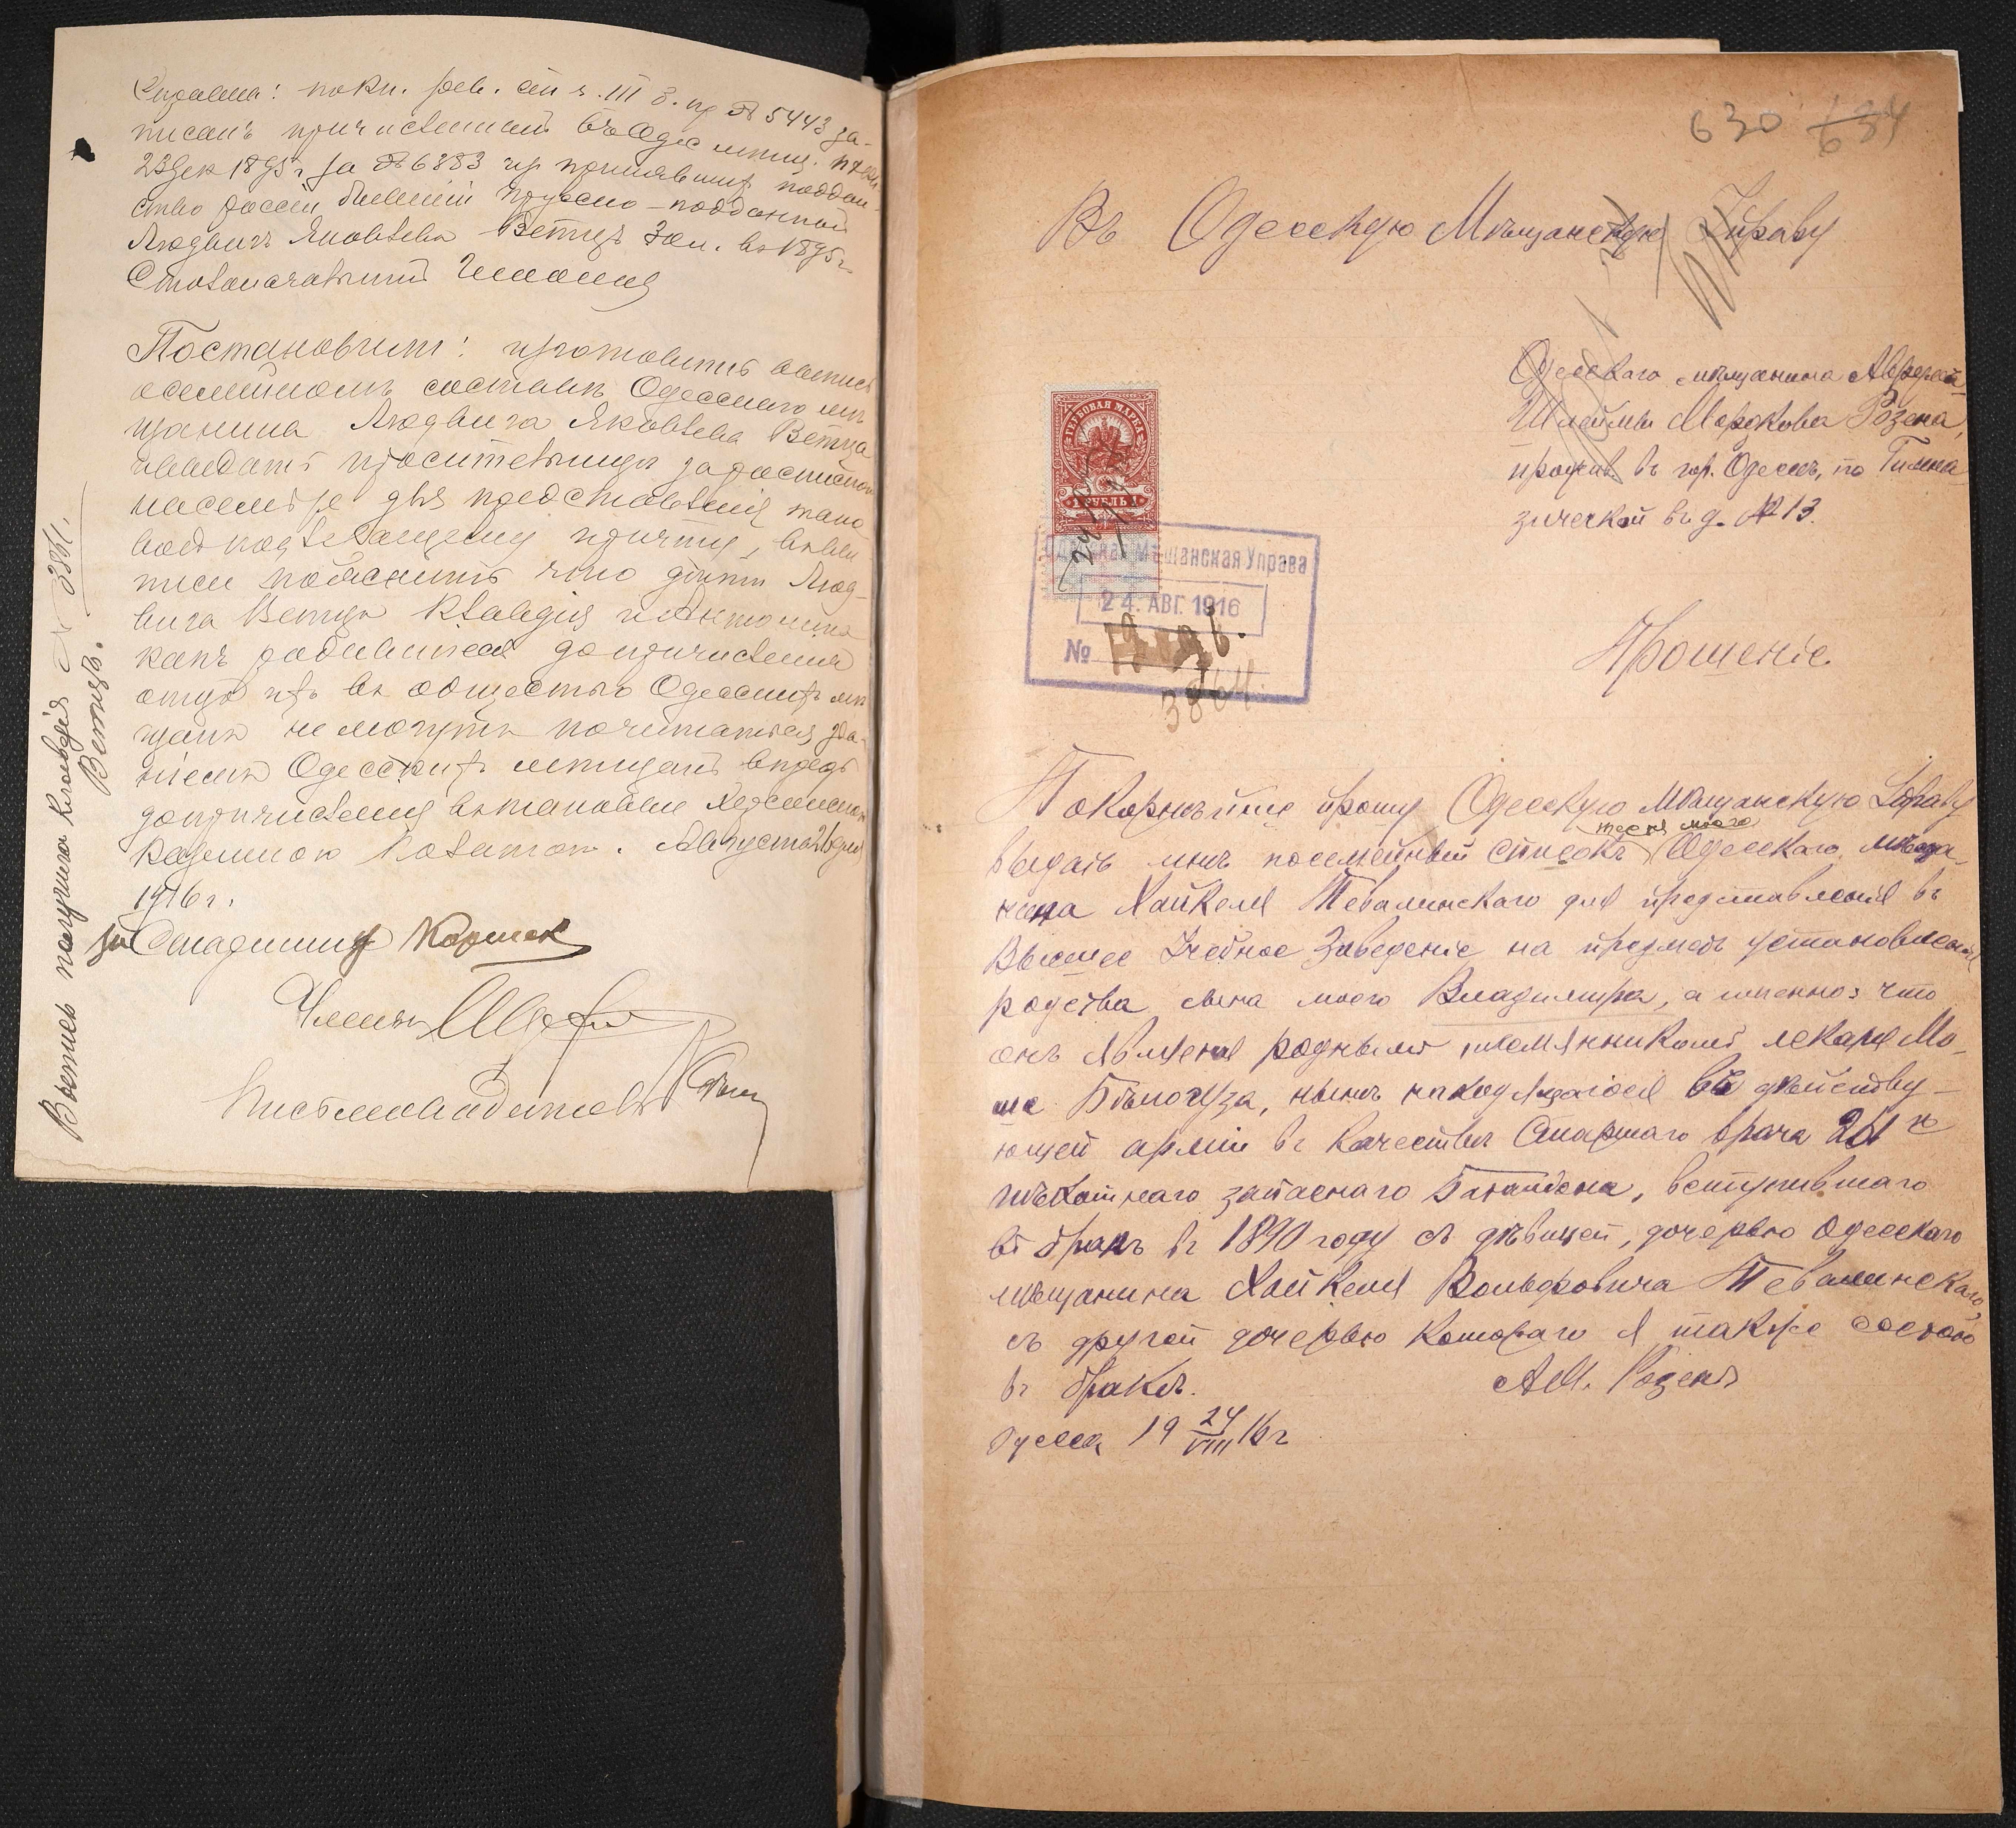 Справка: по кн. рев. ск. ч. III з. пр № 5443 за-
писанъ причисленный въ Одес мѣщ.
23 Дек 1895 г за № 6383 из принявших поддан-
ство россіи бывшій прусско-подданный
Людвигъ Яковлевъ Ветцъ 30 л. въ 1895 г
Столоначальникъ
Постановили: изготовить выпись
о семейномъ составѣ Одесскаго мѣ-
щанина Людвига Яковлева Ветца
и выдать просительницѣ за роспиской
на семъ же для представленія тако
вой подлежащему причту, въ вы
писи пояснить что дѣти Люд-
вига Ветца Клавдія и Антонина
какъ родившіяся до причисленія
отца ихъ въ общество Одесскихъ мѣ
щанъ не могутъ почитаться зва-
ніемъ Одесскихъ мѣщанъ впредь
до причисленія въ таковые Херсонскою
Казенною Палатою. Августа 21 дня
1916 г.
за Старшину
Членъ
Письмоводитель
Выпись получила Клавдія Ветцъ.
№ 3831.
630 634
Въ Одесскую Мѣщанскую Управу
Одесскаго мѣщанина
Шлеймы Мордкова Розена,
прожив. въ гор. Одессѣ, по Гимна
зической въ д. № 13.
ГЕРБОВАЯ МАРКА
1 РУБЛЬ 1
Одесская Мѣщанская Управа
24. АВГ. 1916
№
3864.
Прошеніе
Покорнѣйше прошу Одесскую Мѣщанскую Управу
тестя моего
выдать мнѣ посемейный списокъ Одесскаго мѣща-
нина Хайкеля Тевалинскаго для представленія въ
Высшее Учебное Заведеніе на предметъ установленія
родства сына моего Владимира, а именно: что
онъ является роднымъ племянникомъ лекаря Мо-
ше Бѣлогуза, нынѣ находящагося въ дѣйству-
ющей арміи въ качествѣ Старшаго врача 261 го
пѣхотнаго запаснаго Баталіона, вступившаго
въ бракъ въ 1890 году съ дѣвицей, дочерью Одесскаго
мѣщанина Хайкеля Вольфовича Тевалинскаго,
съ другой дочерью котораго я также состою
въ бракѣ. А М. Розенъ
Одесса 19 24/VIII 16 г